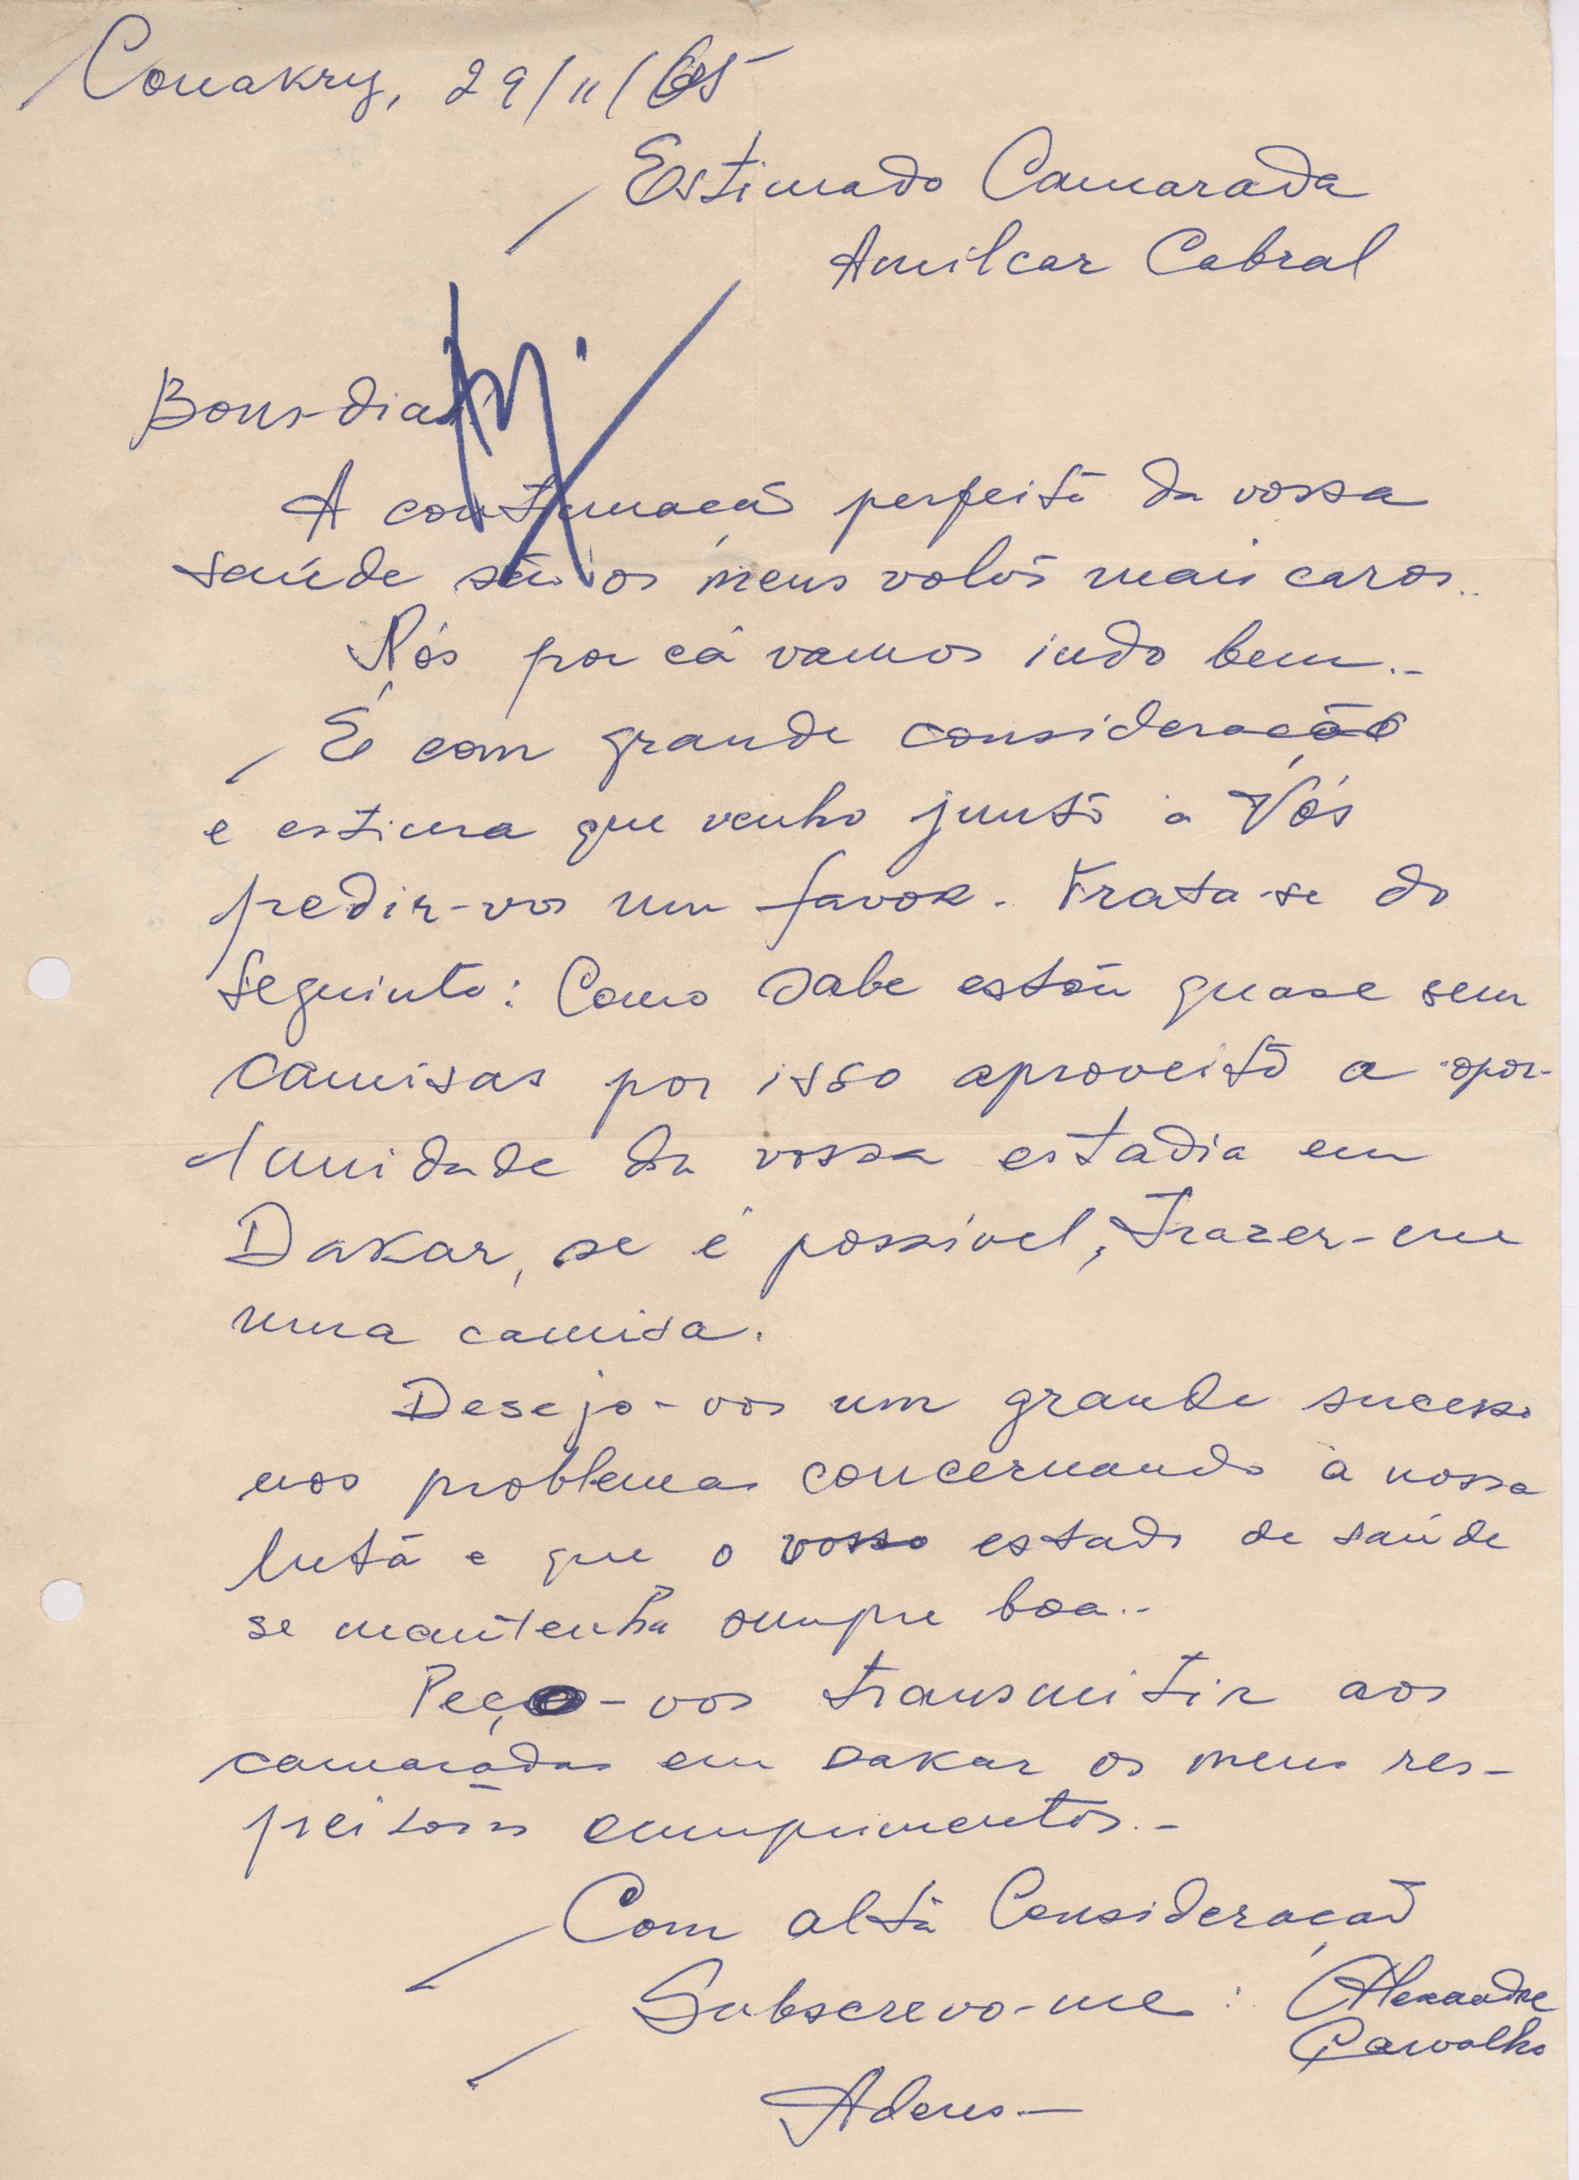 Conakry, 29/11/65
Estimado Camarada
Amilcar Cabral
Bons-dias
A continuação perfeita da vossa
saúde são os meus votos mais caros..
Nós por cá vamos indo bem.-
É com grande consideração
e estima que venho junto a Vós
pedir-vos um favor. Trata-se do
Seguinte: Como sabe estou quase sem
camisas por isso aproveito a opor-
tunidade da vossa estadia em
Dakar, se é possível, trazer-me
uma camisa.
Desejo-vos um grande sucesso
nos problemas concernando à nossa
luta e que o vosso estado de saúde
se mantenha sempre boa.-
Peço-vos transmitir aos
camaradas em Dakar os meus res-
peitosos cumprimentos.-
Com alta Consideração
Subscrevo-me : Alexandre
Carvalho
Adeus-